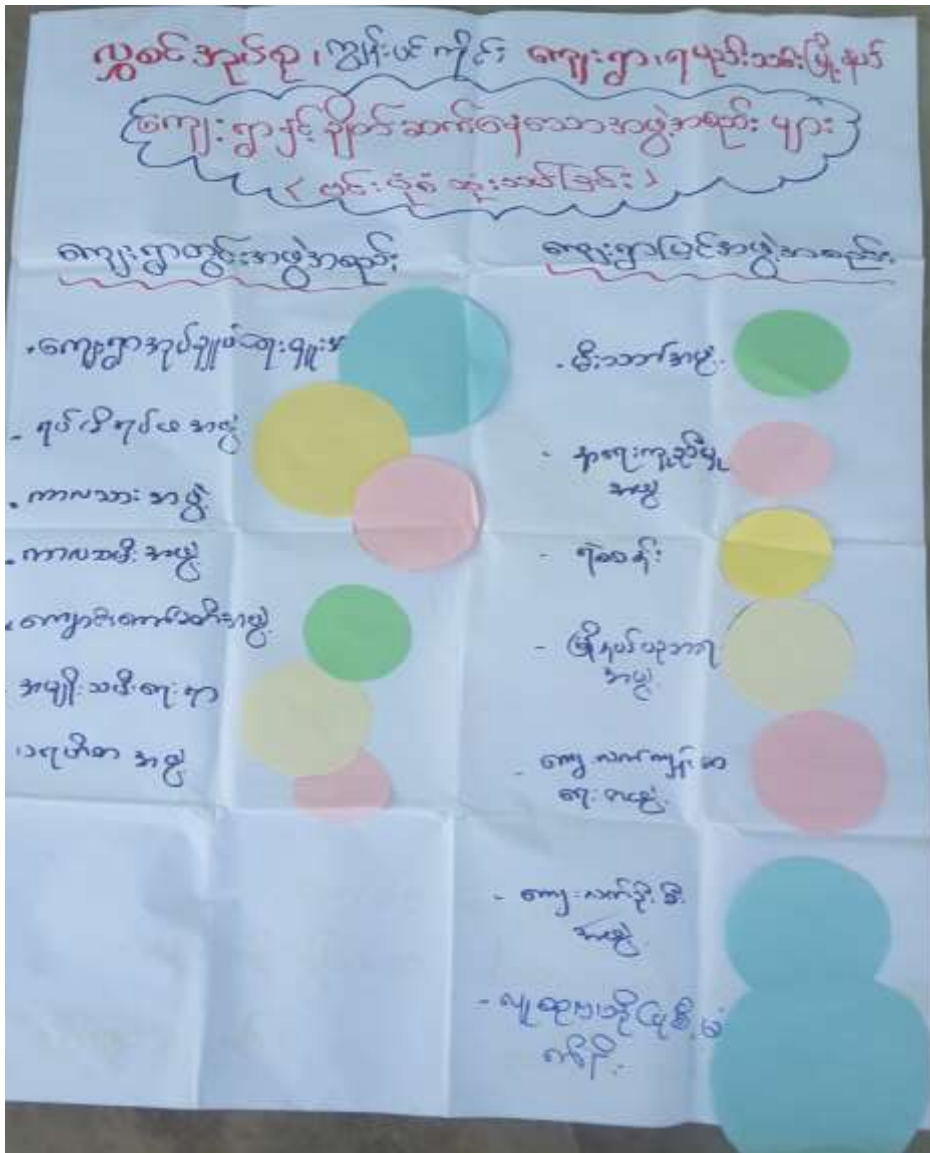 လွှစင်အုပ်စု၊ ကျွန်းပင်ကိုင်း ကျေးရွာ၊ ရမည်းသင်းမြို့နယ်
ကျေးရွာနှင့် ချိတ်ဆက်နေသောအဖွဲ့အစည်း များ
(ဗင်းပုံစံ သုံးသပ်ခြင်း)
ကျေးရွာတွင်းအဖွဲ့အစည်း
ကျေးရွာအုပ်ချုပ်ရေးမှူးအ
ရပ်မိရပ်ဖ အဖွဲ့
ကာလသား အဖွဲ့
ကာလသမီး အဖွဲ့
ကျောင်းကော်မတီအဖွဲ့
အမျိုးသမီးရေးရာ
ပရဟိတ အဖွဲ့
ကျေးရွာပြင်အဖွဲ့အစည်း
မီးသတ်အဖွဲ့
- နာရေးကူညီမှု
အဖွဲ့
- ရဲစခန်း
- မြို့နယ်ပညာရေး
အဖွဲ့
- ကျေးလက်ကျန်းမာ
ရေး အဖွဲ့
- ကျေးလက်ဦးစီး
အဖွဲ့